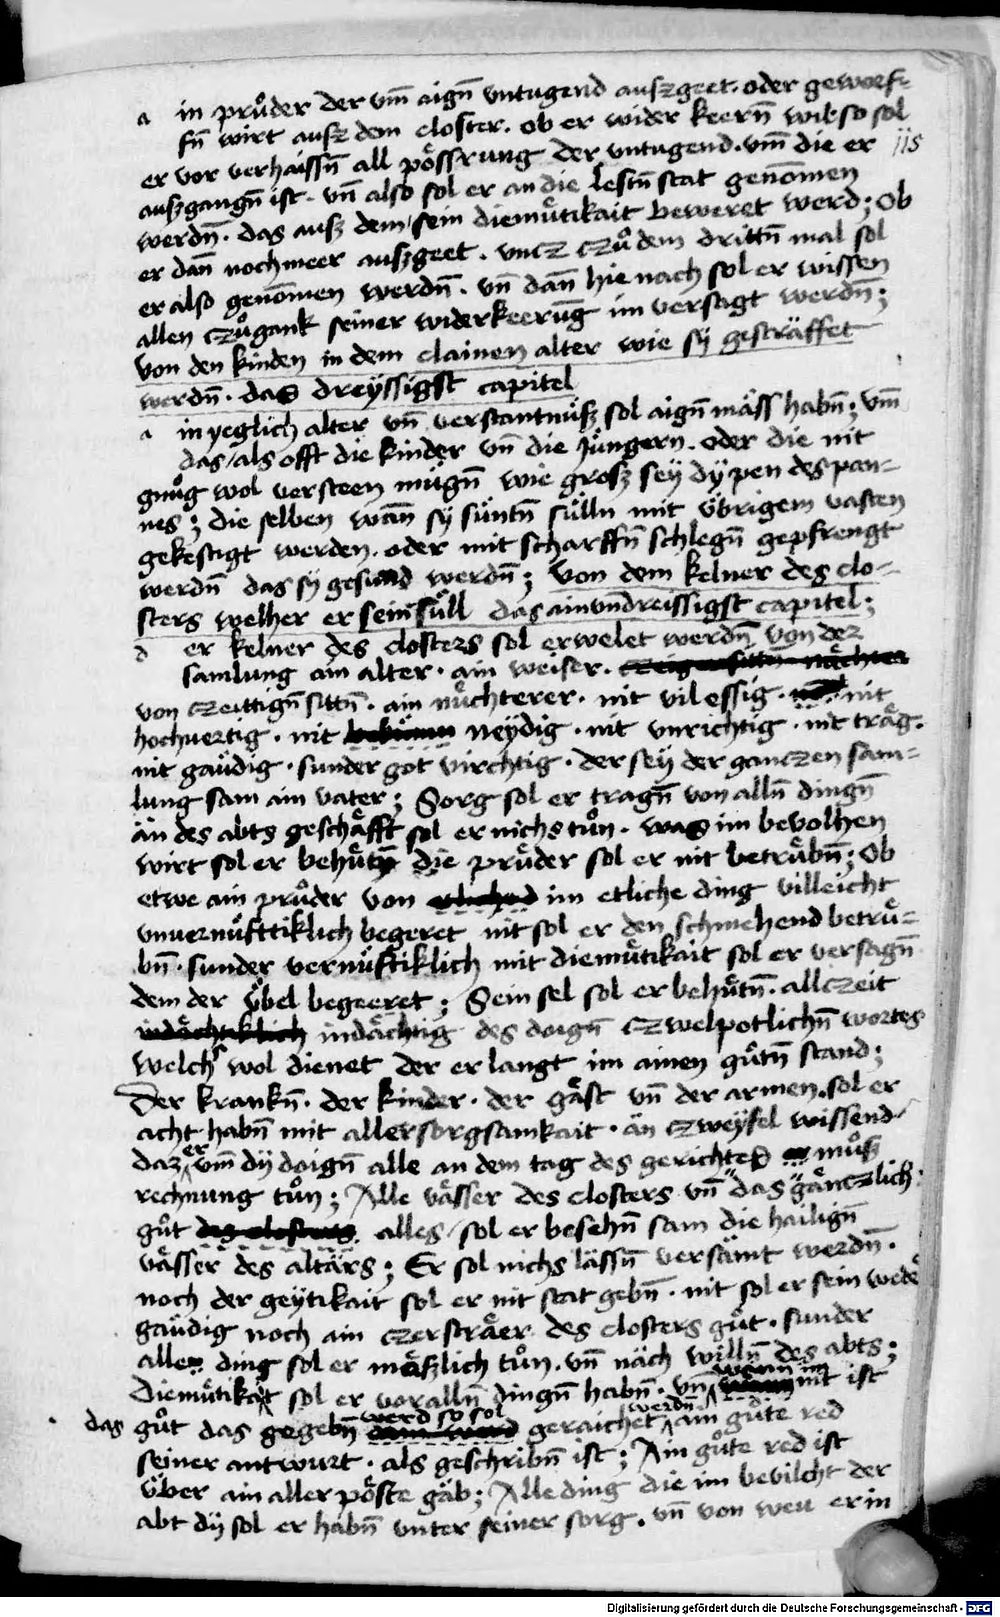 a in průder der vm̄ aign̄ vntugend auszgeet. oder geworf-
fn̄ wirt ausz dem closter. ob er wider keern̄ wil so sol
er vor verhaissn̄ all pössrung der vntugend. vm̄ die er
auszgangn̄ ist. vn̄ also sol er an die lestn̄ stat genōmen
werdn̄. das ausz dem / sein diemůtikait beweret werd; Ob
er dan̄ noch meer auszgeet. vncz czů dem drittn̄ mal sol
er also genōmen werdn̄. vn̄ dan̄ hie nach sol er wissen
allen czůgank seiner widerkeerūg im versagt werdn̄;
von den kinden in dem clainen alter wie sÿ gesträffet
werdn̄. das dreÿssigst capitel
a in yeglich alter vn̄ verstantnüsz sol aign̄ mäss habn̄; vm̄
das / als offt die kinder vn̄ die Jüngern. oder die nit
gnůg wol versteen mügn̄ wie grosz seÿ dÿ pen des pan-
nes; die selben wan̄ sÿ süntn̄ sülln mit übrigem vasten
gekestigt werden. oder mit scharffn̄ schlegn̄ gepfrengt
werdn̄ das sÿ gesund werdn̄; von dem kelner des clo-
sters welher er sein süll das ainvndreissigst capitel;
d er kelner des closters sol erwelet werdn̄ von der
samlung ain alter. ain weiser.
von czeittign̄ sittn̄. ain nüchterer. nit vil essig. nit
hochvertig. nit neÿdig. nit vnrichtig. nit träg.
nit gaüdig. sunder got virchtig. der seÿ der ganczen sam-
lung sam ain vater; Sorg sol er tragn̄ von alln̄ dingn̄
än des abts geschäfft sol er nichs tůn. was im bevolhen
wirt sol er behütn̄ die prüder sol er nit betrübn̄; Ob
etwe ain průder von im etliche ding villeicht
vnvernüfttiklich begeret nit sol er den schmehend betrü-
bn̄. sunder vernüftiklich mit diemütikait sol er versagn̄
dem der übel begeeret; Sein sel sol er behütn̄. allczeit
indächtig des doign̄ czwelpotlichn̄ wortes
welcher wol dienet der erlangt im ainen gůtn̄ stand;
Der krankn̄. der kinder. der gäst vn̄ der armen. sol er
acht habn̄ mit aller sorgsamkait. än czweÿfel wissend
daz er vm̄ dÿ doign̄ alle an dem tag des gerichtes můsz
rechnung tůn; Alle vässer des closters vn̄ das gänczlich
gůt alles / sol er besehn̄ sam die hailign̄
vässer des altärs; Er sol nichs lässn̄ versämt werdn̄.
noch der geÿtikait sol er nit stat gebn̄. nit sol er sein weder
gaüdig noch ain czerstraer des closters gůt. sunder
alle ding sol er mäszlich tůn. vn̄ näch willn̄ des abts;
Diemütikait sol er vor alln̄ dingn̄ habn̄. vn̄ wenn im nit ist
das gůt das gegebn̄ werd so sol geraichet werdn̄ ain gůte red
seiner antwurt. als geschribn̄ ist; Ain gůte red ist
über ain aller pöste gäb; Alle ding die im bevilcht der
abt dÿ sol er habn̄ vnter seiner sorg. vn̄ von weu er in
Digitalisierung gefördert durch die Deutsche Forschungsgemeinschaft - DFG